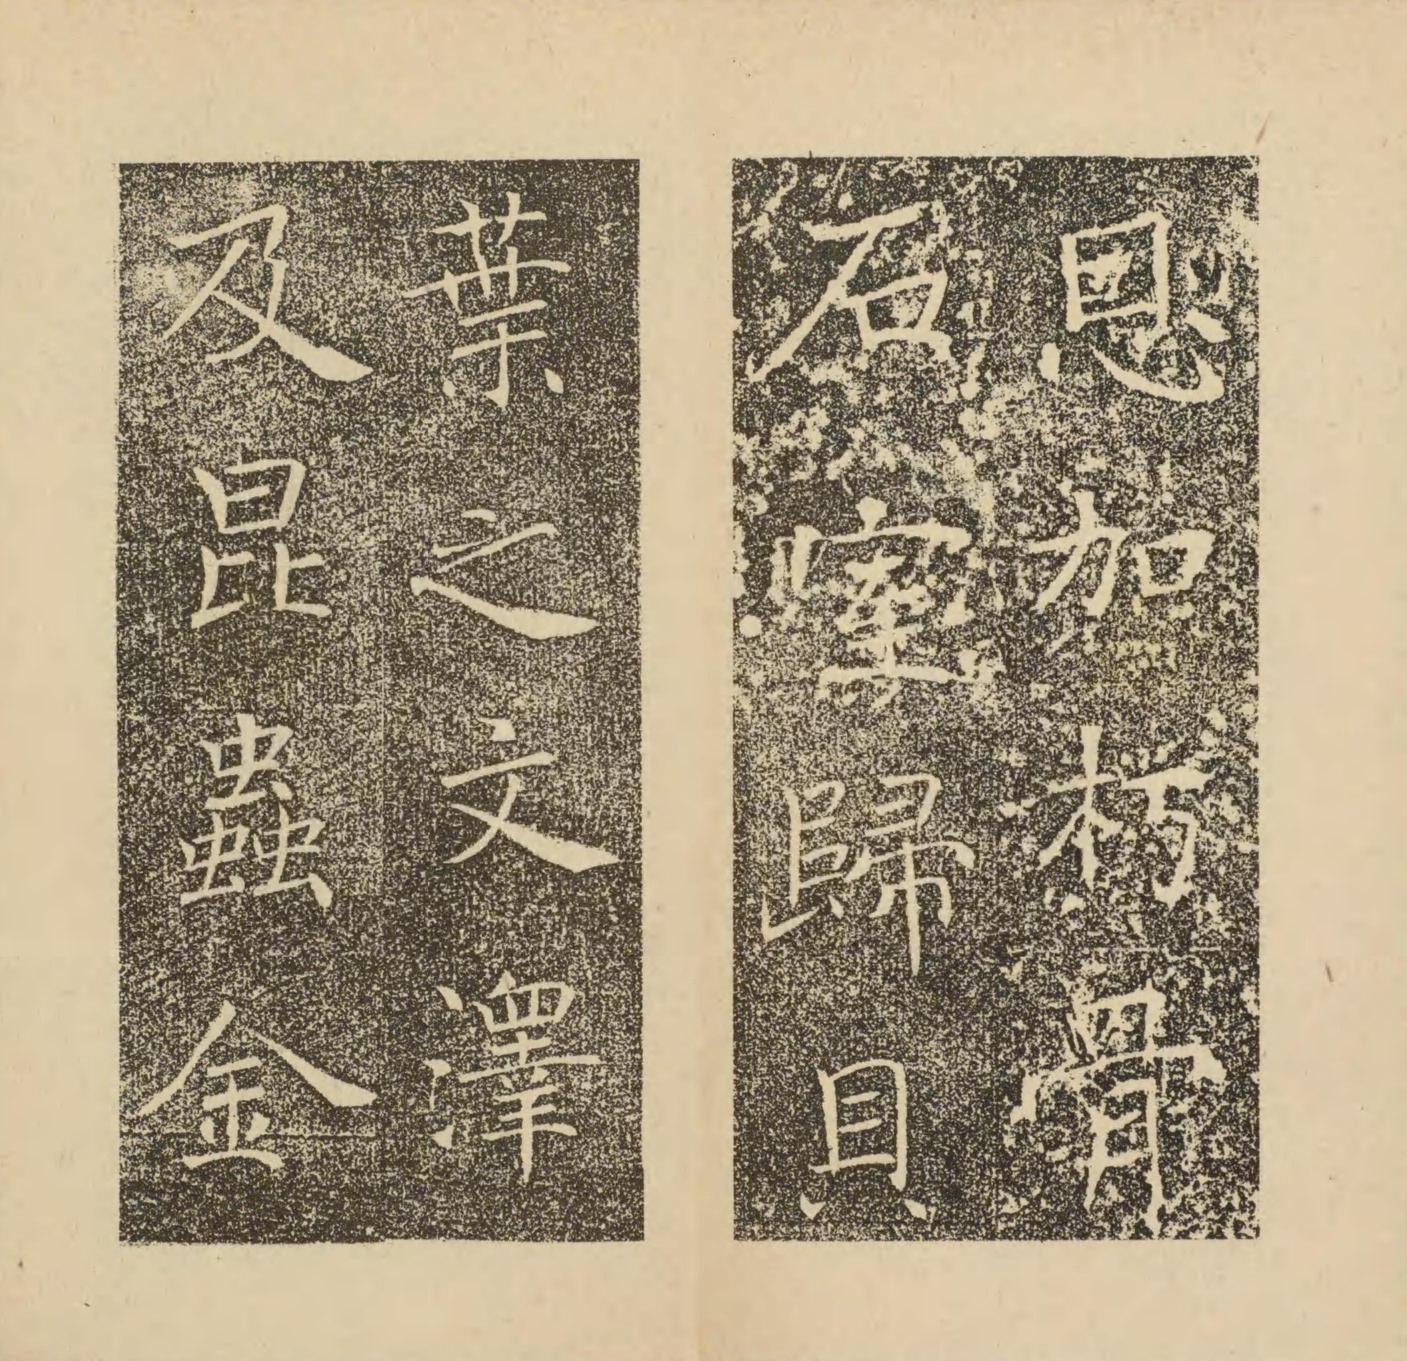 恩加朽骨
石室歸貝
葉之文澤
及昆蟲金